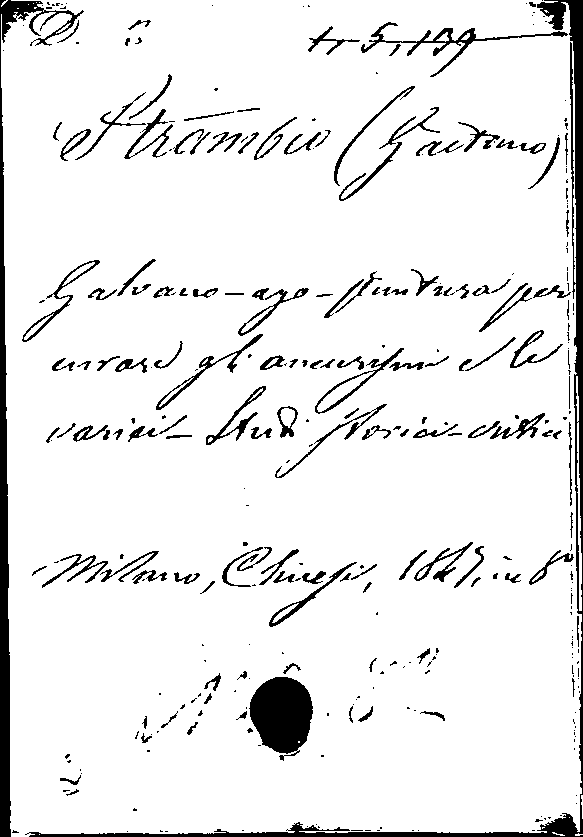 D.
1, 5, 139
Strambio (Gaetano)
Galvano-ago-puntura per
curare gli aneurismi e le
varici - Studi storici-critici
Milano, Chiusi, 1847, in 8°